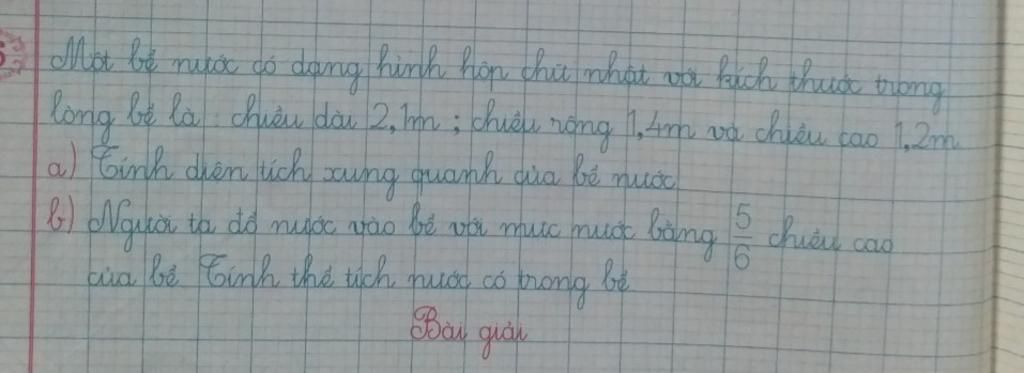 Một bể nước có dạng hình hộp chữ nhật với kích thước trong
lòng bể là: chiều dài 2,1m; chiều rộng 1,4m và chiều cao 1,2m
a) Tính diện tích xung quanh của bể nước
b) Người ta đổ nước vào bể với mực nước bằng 5/6 chiều cao
của bể. Tính thể tích nước có trong bể
Bài giải